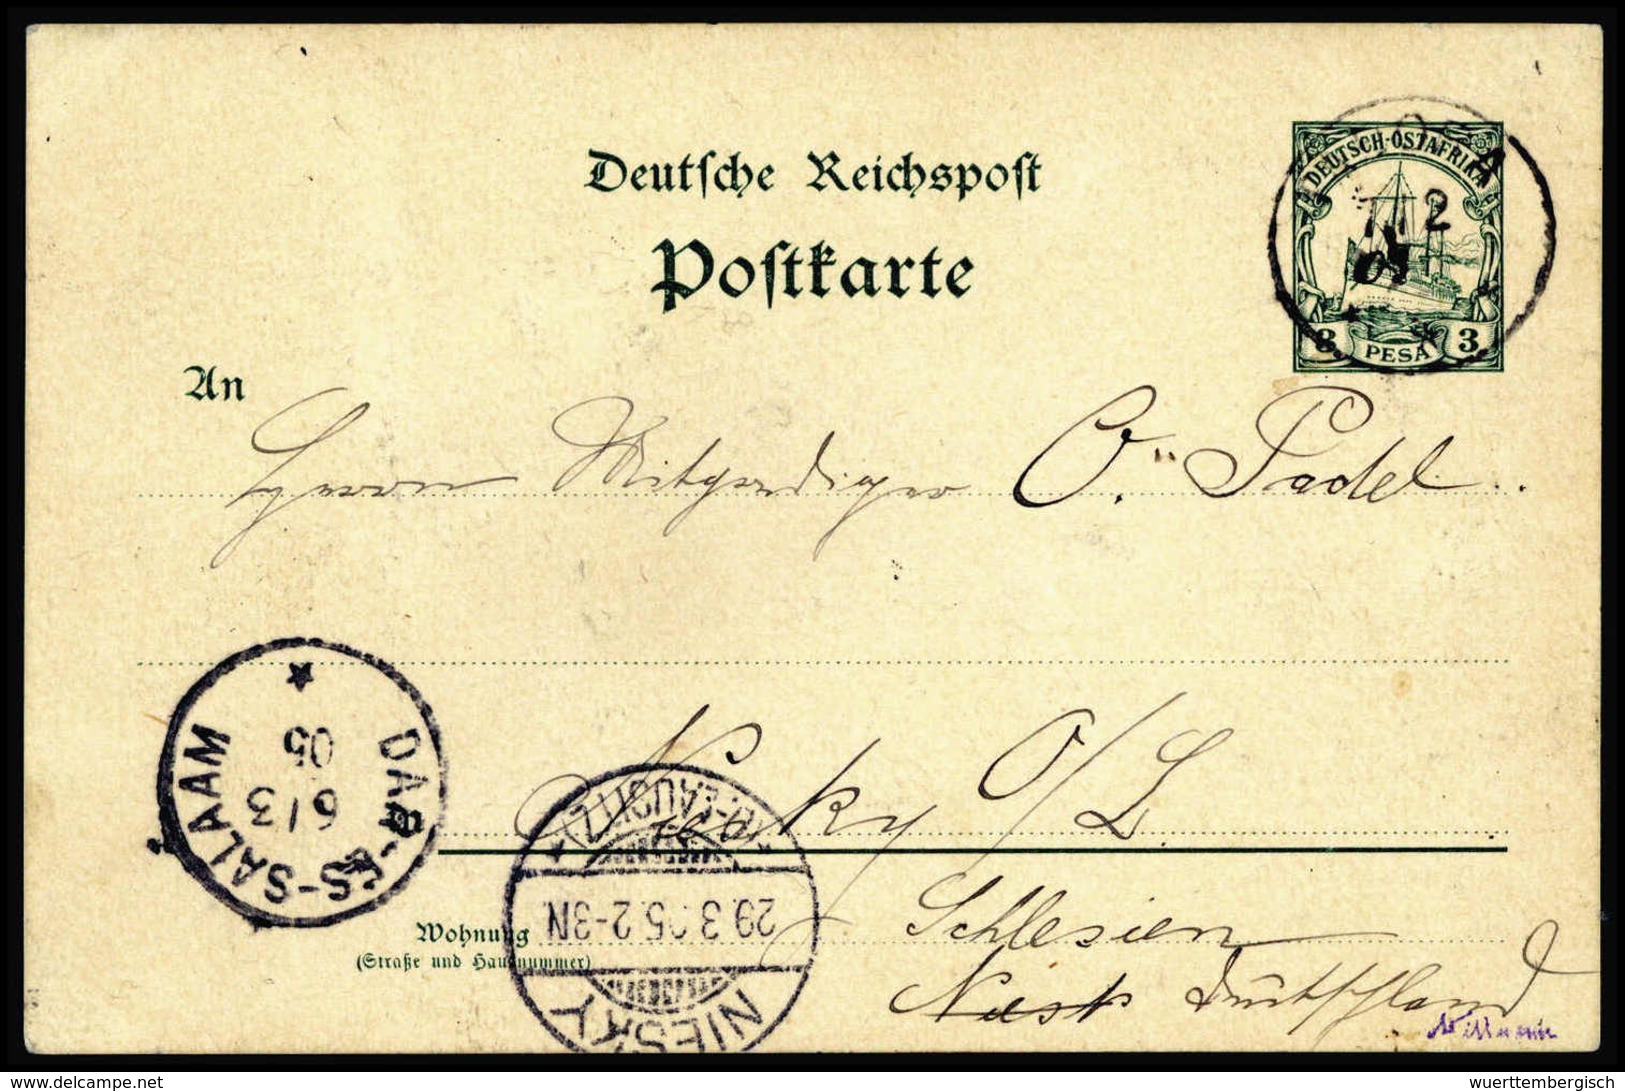 Deutsche Reichspost
Postkarte
DEUTSCH-OSTAFRIKA
7/2
3 PESA 3
An
Herrn Mitprediger O. Padel
DAR-ES-SALAAM
6/3
05
Niesky O/L
NIESKY
29.3.05.2-3N.
(OB.-LAUSITZ)
Wohnung
(Straße und Hausnummer)
Schlesien
Deutschland
© delcampe.net
wuerttembergisch